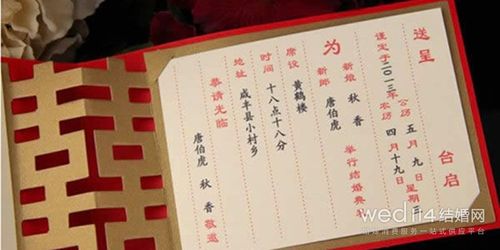 送呈 台启
谨定于二〇一三年 公历 五月九日 星期
农历 四月十九日
为 新娘 秋香
新郎 唐伯虎 举行结婚典礼
席设 黄鹤楼
时间 十八点十八分
地址 咸丰县小村乡
恭请光临
唐伯虎 秋香 敬邀
wed114结婚网
结婚消费服务一站式供应平台